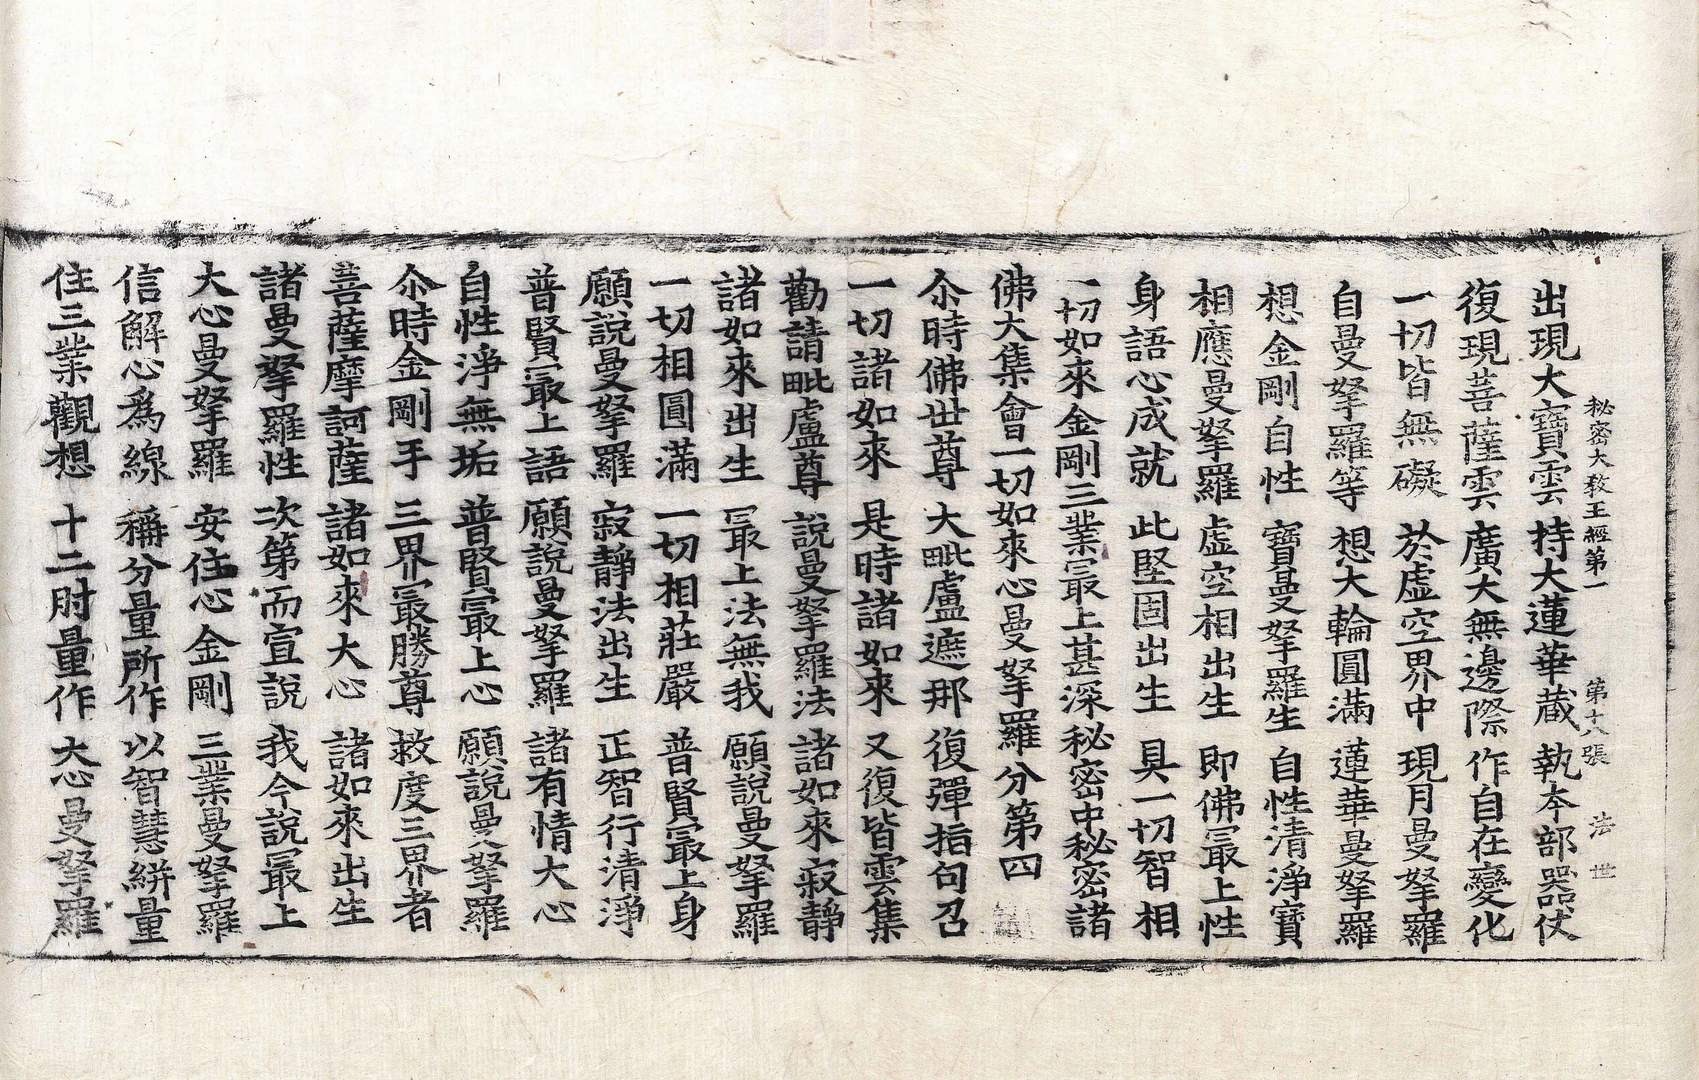 秘密大教王經第一 第十八張 法 世
出現大寶雲 持大蓮華藏 執夲部器仗
復現菩薩雲 廣大無邊際 作自在變化
一切皆無礙 於虛空界中 現月曼拏羅
自曼拏羅等 想大輪圓滿 蓮華曼拏羅
想金剛自性 寶曼拏羅生 自性清淨寶
相應曼拏羅 虛空相出生 即佛㝡上性
身語心成就 此堅固出生 具一切智相
一切如來金剛三業㝡上甚深秘密中秘密諸
佛大集會一切如來心曼拏羅分第四
尒時佛世尊 大毗盧遮那 復彈指句召
一切諸如來 是時諸如來 又復皆雲集
勸請毗盧尊 說曼拏羅法 諸如來寂靜
諸如來出生 㝡上法無我 願說曼拏羅
一切相圓滿 一切相莊嚴 普賢㝡上身
願說曼拏羅 寂靜法出生 正智行清淨
普賢㝡上語 願說曼拏羅 諸有情大心
自性淨無垢 普賢㝡上心 願說曼拏羅
尒時金剛手 三界㝡勝尊 救度三界者
菩薩摩訶薩 諸如來大心 諸如來出生
諸曼拏羅性 次第而宣說 我今說㝡上
大心曼拏羅 安住心金剛 三業曼拏羅
信解心爲線 稱分量所作 以智慧絣量
住三業觀想 十二肘量作 大心曼拏羅